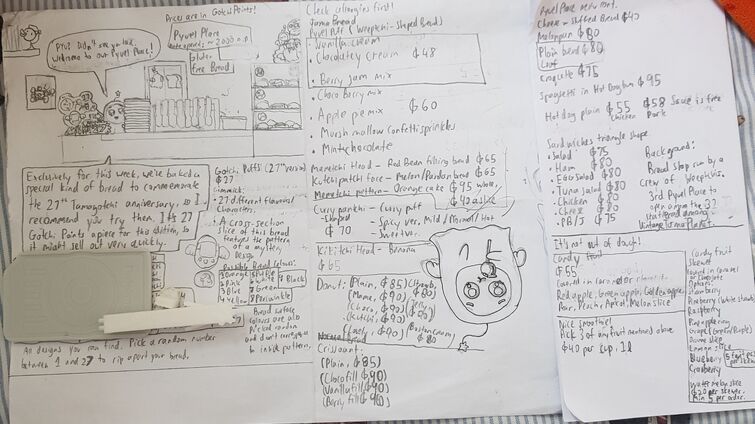 Prices are in Gotchi Points!
Pyuel Place
Gluten
Free Bread
Pyu! Didn't see you there,
Welcome to our Pyuel Place!
Exclusively for this week, we've baked a
special kind of bread to commemorate
the 27th Tamagotchi anniversary, so I
recommend you try them. It's 27
Gotchi Points apiece for this edition, so
it might sell out very quickly.
Gotchi Puffs (27th version)
₲27
Gimmick:
- 27 different flavours/
Characters.
- A cross-section
slice of this bread
features the pattern
of a mystery
Design
Possible Bread Colours:
1 Orange
2 Pink
3 Blue
4 Yellow
5 Purple
6 White
7 Green
8 Black
9 Periwinkle
Bread wafers
colours are also
Picked random
and don't correspond
to inside pattern.
All designs you can find. Pick a random number
between 1 and 27 to rip apart your bread.
Check allergies first!
Jumo Bread
Pyuel Puff (Weeptchi-Shaped Bread)
- Vanilla cream
• Chocolatey cream ₲48
• Berry jam mix
• Choco Berry mix
• Apple pie mix ₲60
• Marshmallow Confetti sprinkles
• Mint chocolate
Mametchi Head - Red Bean filling bread ₲65
Kutchipatchi face - Melon/Pandan bread ₲65
Memetchi pattern - Orange cake ₲95 whole,
₲42 a slice
Curry pantchi - Curry puff
bread - Spicy ver. Mild/Normal/Hot
₲70 - Sweet ver.
Kikitchi Head - Banana
₲65
Donut: (Plain, ₲85)
(Mame, ₲90)
(Choco, ₲90)
(Kutchi, ₲90)
Crissant:
(Plain, ₲85)
(Choco fill ₲90)
(Vanilla fill ₲90)
(Berry fill ₲90)
Pyuel Place menu Part.
Cheese-stuffed Bread ₲40
Melonpan ₲80
Plain bread ₲80
Loaf
Croquette ₲75
Spaghetti in Hotdog bun ₲95
Hotdog plain ₲55 ₲58 Sauce is free
Chicken Pork
Sandwiches triangle shape
• Salad ₲75
• Ham ₲80
• Egg Salad ₲80
• Tuna salad ₲80
• Chicken ₲80
• Cheese ₲80
• PB/J ₲75
Background:
Bread Shop run by a
crew of Weeptchis.
3rd Pyuel Place to
open among the 32
scattered among
Vintage Tama Planet.
It's not out of dough!
Candy fruit
₲55
Red apple, Green apple, Golden apple,
Pear, Peach, Apricot, Melon slice
Nice Smoothie!
Pick 3 of any fruit mentioned above
₲40 per cup, 1L
Candy fruit
Skewer
Options:
Strawberry
Raspberry
Pineapple ring
Lemon slice
Blueberry
Cranberry
Watermelon slice
₲20 per skewer.
Min 5 per order.